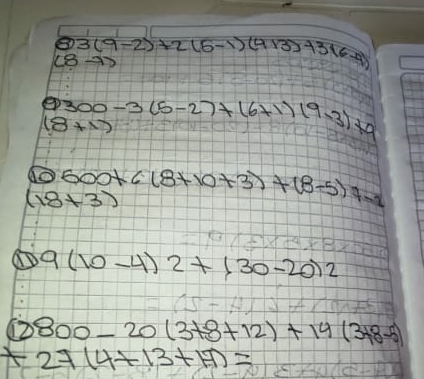 ⑧ 3(9-2)+2(5-1)(4+3)+3(6-4)
(8-7)
⑨ 300-3(5-2)+(6+1)(9-3)+9
(8+1)
⑩ 500+6(8+10+3)+(8-5)7-2
(18+3)
⑪ 9(10-4)2+(30-20)2
⑫ 800-20(3+8+12)+19(3+8-5)
+27(4+13+17)=